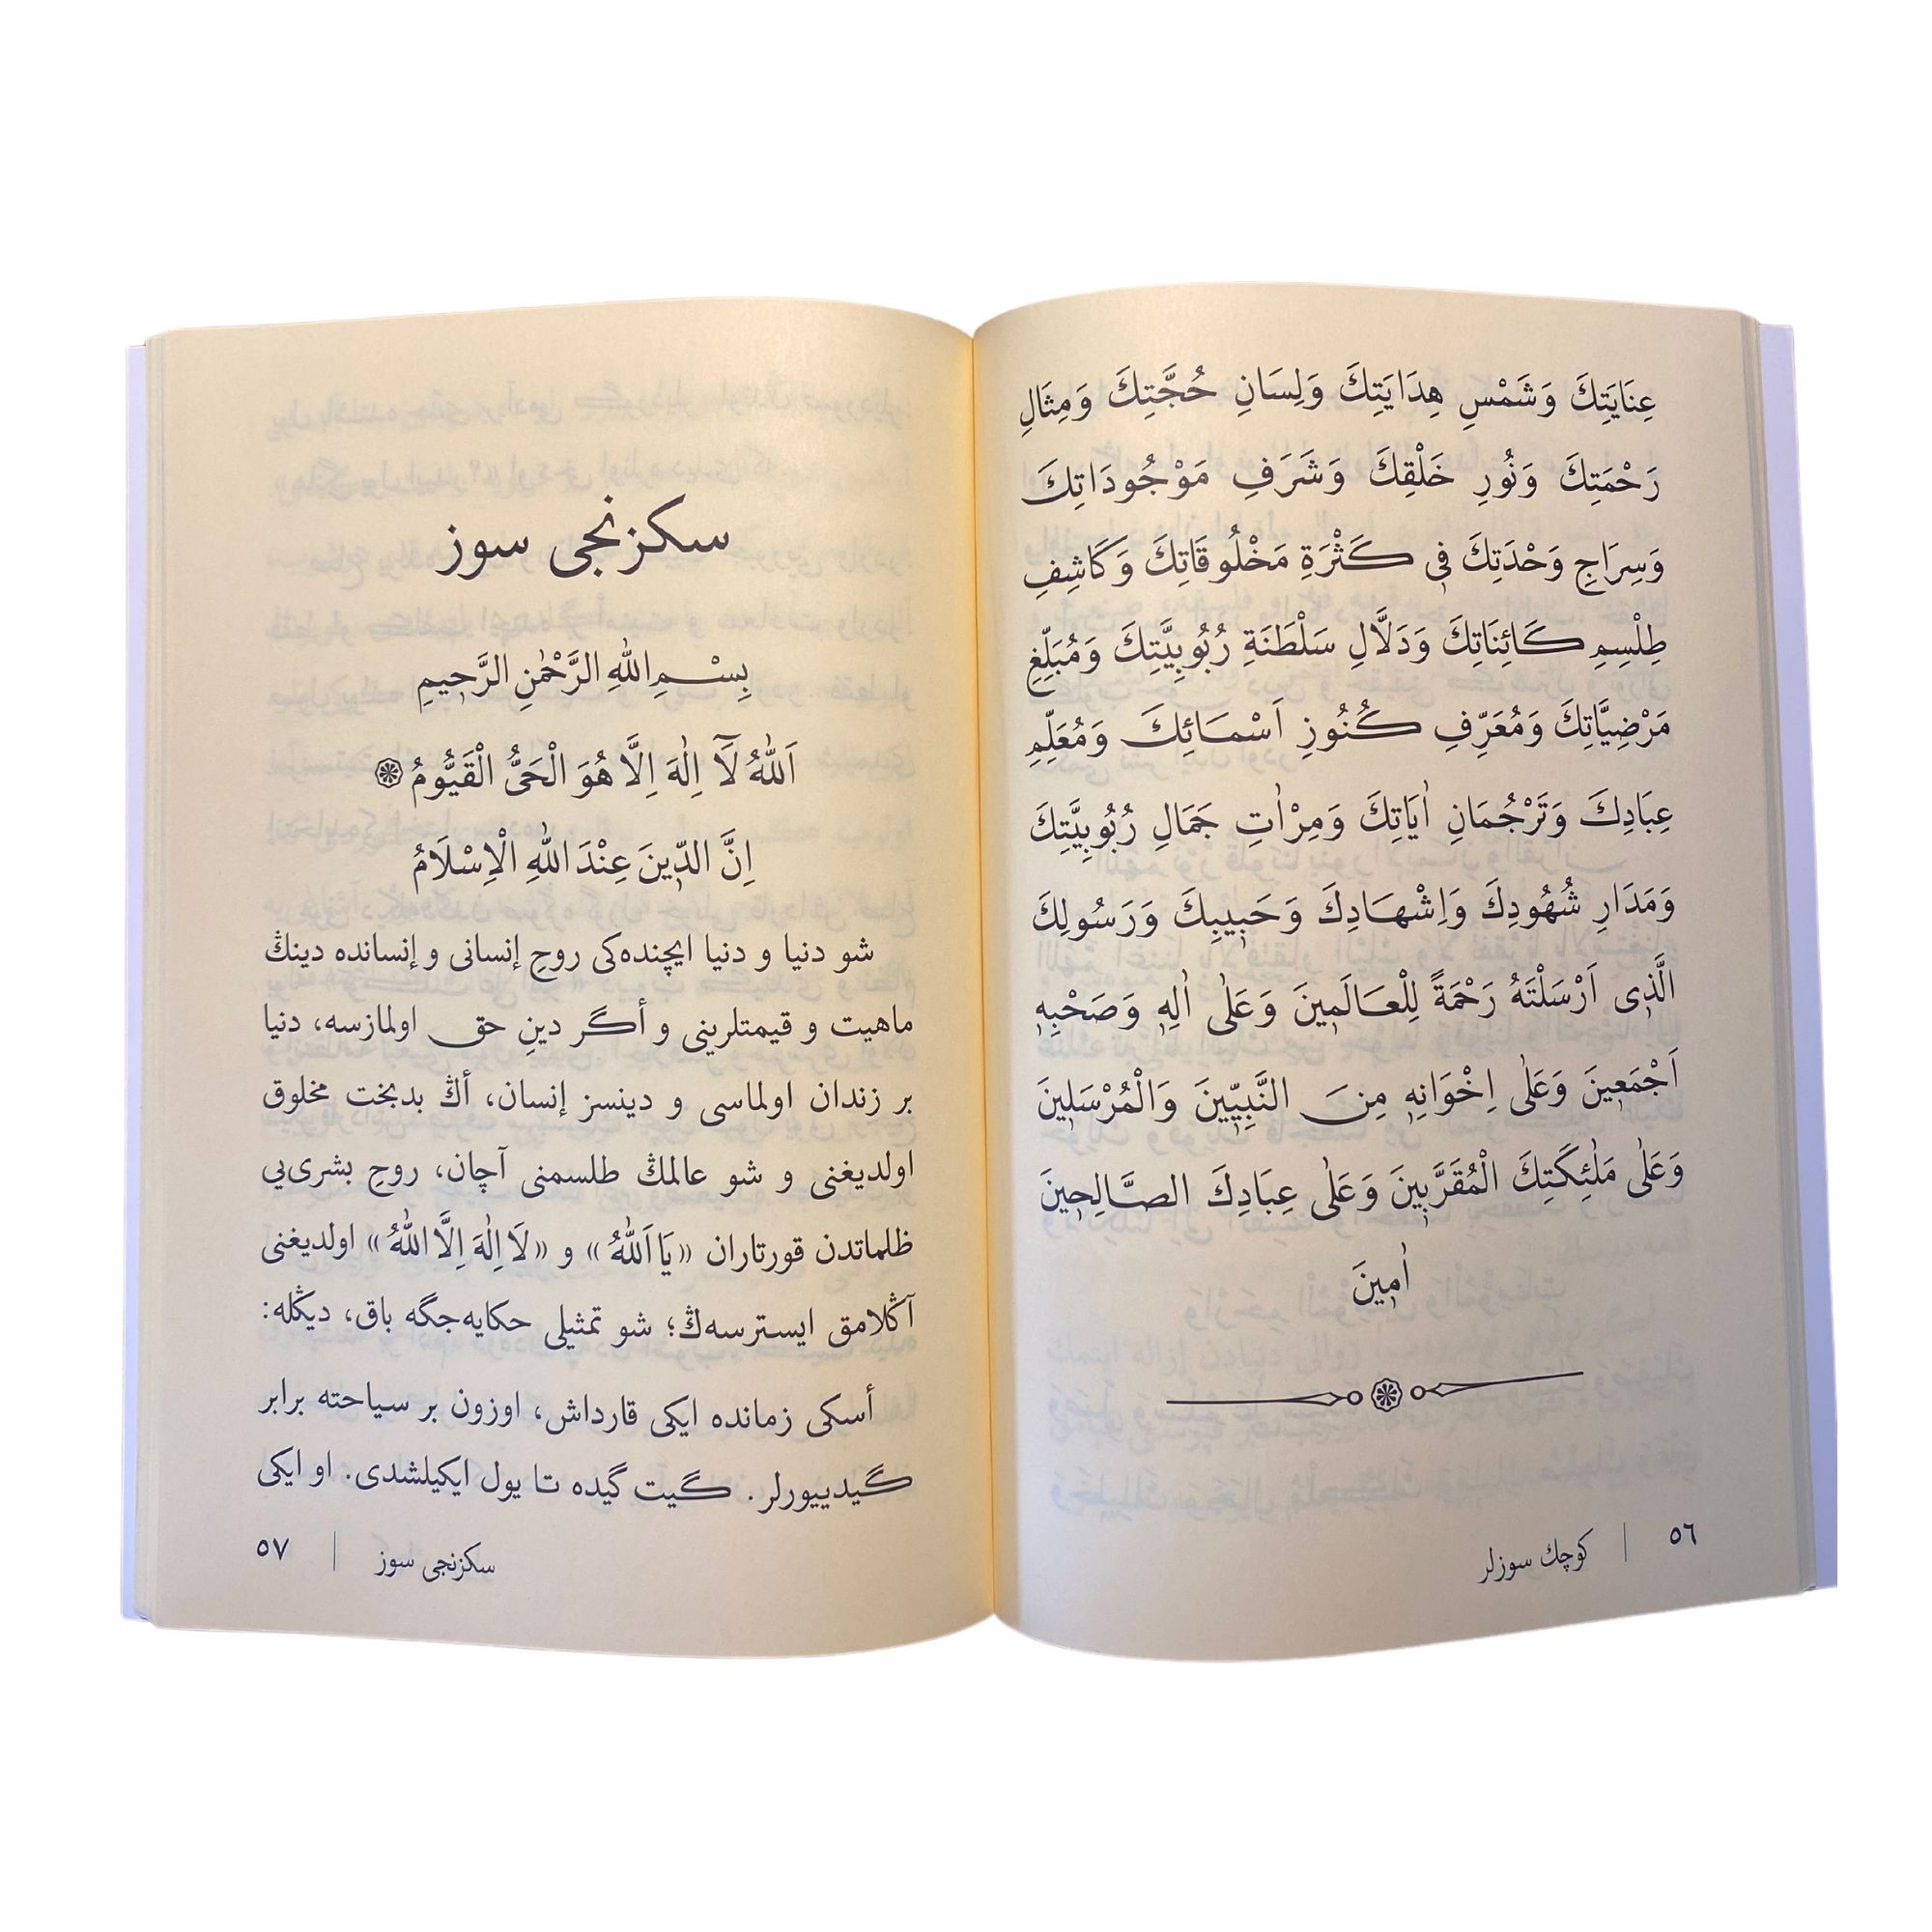 عِنَايَتِكَ وَشَمْسِ هِدَايَتِكَ وَلِسَانِ حُجَّتِكَ وَمِثَالِ
رَحْمَتِكَ وَنُورِ خَلْقِكَ وَشَرَفِ مَوْجُودَاتِكَ
وَسِرَاجِ وَحْدَتِكَ فٖى كَثْرَةِ مَخْلُوقَاتِكَ وَكَاشِفِ
طِلْسِمِ كَائِنَاتِكَ وَدَلَّالِ سَلْطَنَةِ رُبُوبِيَّتِكَ وَمُبَلِّغِ
مَرْضِيَّاتِكَ وَمُعَرِّفِ كُنُوزِ اَسْمَائِكَ وَمُعَلِّمِ
عِبَادِكَ وَتَرْجُمَانِ اٰيَاتِكَ وَمِرْاٰتِ جَمَالِ رُبُوبِيَّتِكَ
وَمَدَارِ شُهُودِكَ وَاِشْهَادِكَ وَحَبٖيبِكَ وَرَسُولِكَ
الَّذٖى اَرْسَلْتَهُ رَحْمَةً لِلْعَالَمٖينَ وَعَلٰى اٰلِهٖ وَصَحْبِهٖ
اَجْمَعٖينَ وَعَلٰى اِخْوَانِهٖ مِنَ النَّبِيّٖينَ وَالْمُرْسَلٖينَ
وَعَلٰى مَلٰئِكَتِكَ الْمُقَرَّبٖينَ وَعَلٰى عِبَادِكَ الصَّالِحٖينَ
اٰمٖينَ
٥٦ | كوچك سوزلر
سكزنجى سوز
بِسْمِ اللّٰهِ الرَّحْمٰنِ الرَّحٖيمِ
اَللّٰهُ لَٓا اِلٰهَ اِلَّا هُوَ الْحَىُّ الْقَيُّومُ ۞
اِنَّ الدّٖينَ عِنْدَ اللّٰهِ الْاِسْلَامُ
شو دنيا و دنيا ايچنده‌كى روحِ إنسانى و إنسانده دينڭ
ماهيت و قيمتلرينى و أگر دينِ حق اولمازسه، دنيا
بر زندان اولماسى و دينسز إنسان، أڭ بدبخت مخلوق
اولديغنى و شو عالمڭ طلسمنى آچان، روحِ بشرى‌يى
ظلماتدن قورتاران «يَا اَللّٰهُ» و «لَا اِلٰهَ اِلَّا اللّٰهُ» اولديغنى
آڭلامق ايسترسه‌ڭ؛ شو تمثيلى حكايه‌جگه باق، ديڭله:
أسكى زمانده ايكى قارداش، اوزون بر سياحته برابر
گيدييورلر. گيت گيده تا يول ايكيلشدى. او ايكى
سكزنجى سوز | ٥٧